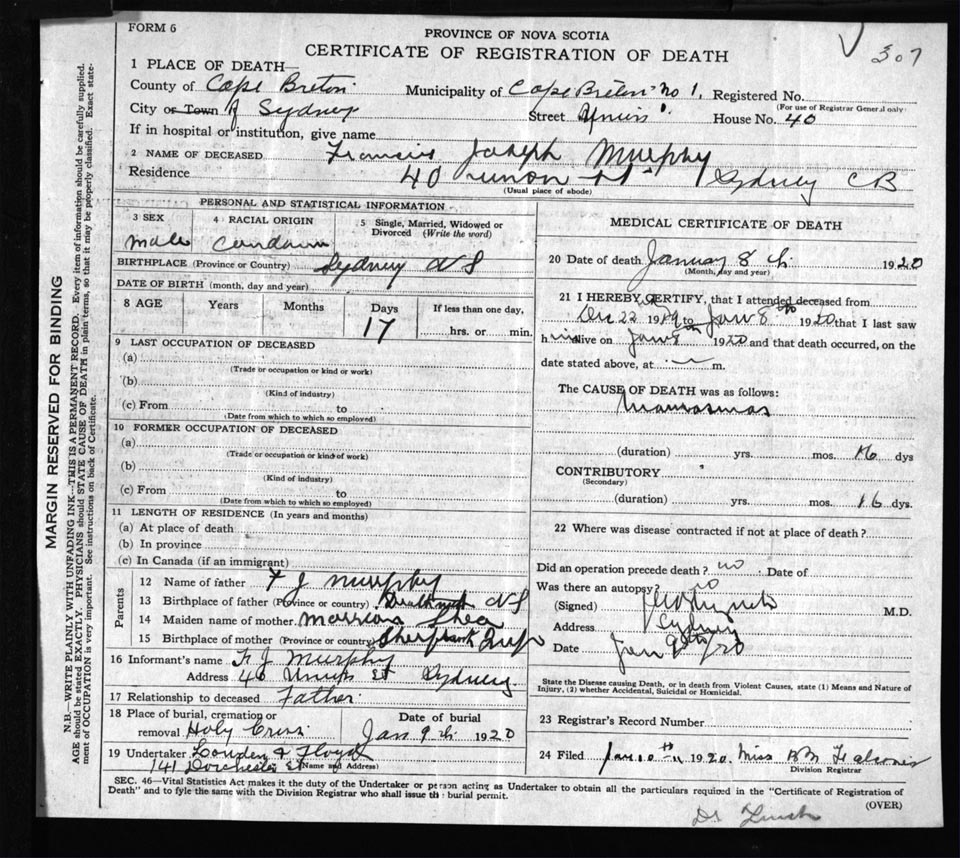 FORM 6
PROVINCE OF NOVA SCOTIA
307
CERTIFICATE OF REGISTRATION OF DEATH
1 PLACE OF DEATH—
County of Cape Breton Municipality of Cape Breton No 1. Registered No.
(For use of Registrar General only)
City or Town of Sydney Street Union House No. 40
If in hospital or institution, give name
2 NAME OF DECEASED Francis Joseph Murphy
Residence 40 union st Sydney CB
(Usual place of abode)
PERSONAL AND STATISTICAL INFORMATION
3 SEX
male
4 RACIAL ORIGIN
5 Single, Married, Widowed or Divorced (Write the word)
BIRTHPLACE (Province or Country) Sydney N S
DATE OF BIRTH (month, day and year)
8 AGE Years Months Days If less than one day,
17 hrs. or min.
9 LAST OCCUPATION OF DECEASED
(a)
(Trade or occupation or kind or work)
(b)
(Kind of industry)
(c) From to
(Date from which to which so employed)
10 FORMER OCCUPATION OF DECEASED
(a)
(Trade or occupation or kind of work)
(b)
(Kind of industry)
(c) From to
(Date from which to which so employed)
11 LENGTH OF RESIDENCE (In years and months)
(a) At place of death
(b) In province
(c) In Canada (if an immigrant)
Parents
12 Name of father F J Murphy
13 Birthplace of father (Province or country) N S
14 Maiden name of mother Shea
15 Birthplace of mother (Province or country)
16 Informant's name F. J. Murphy
Address 40 Union St Sydney.
17 Relationship to deceased Father
18 Place of burial, cremation or removal Holy Cross
Date of burial
Jan 9th 1920
19 Undertaker Lowden & Floyd
141 Dorchester St (Name and Address)
MEDICAL CERTIFICATE OF DEATH
20 Date of death January 8th 1920
(Month, day and year)
21 I HEREBY CERTIFY, that I attended deceased from
Dec 22 1919 to Jan 8th 1920 that I last saw
him alive on Jan 8th 1920 and that death occurred, on the
date stated above, at m.
The CAUSE OF DEATH was as follows:
(duration) yrs. mos. 16 dys
CONTRIBUTORY
(Secondary)
(duration) yrs. mos. 16 dys.
22 Where was disease contracted if not at place of death?
Did an operation precede death? no Date of
Was there an autopsy? no
(Signed) M.D.
Address Sydney
Date Jan 9th /20
State the Disease causing Death, or in death from Violent Causes, state (1) Means and Nature of
Injury, (2) whether Accidental, Suicidal or Homicidal.
23 Registrar's Record Number
24 Filed Jan. 10th 1920. Miss
Division Registrar
SEC. 46—Vital Statistics Act makes it the duty of the Undertaker or person acting as Undertaker to obtain all the particulars required in the "Certificate of Registration of
Death" and to fyle the same with the Division Registrar who shall issue the burial permit.
(OVER)
MARGIN RESERVED FOR BINDING
N.B.—WRITE PLAINLY WITH UNFADING INK—THIS IS A PERMANENT RECORD. Every item of information should be carefully supplied.
AGE should be stated EXACTLY. PHYSICIANS should STATE CAUSE OF DEATH in plain terms, so that it may be properly classified. Exact state-
ment of OCCUPATION is very important. See instructions on back of Certificate.